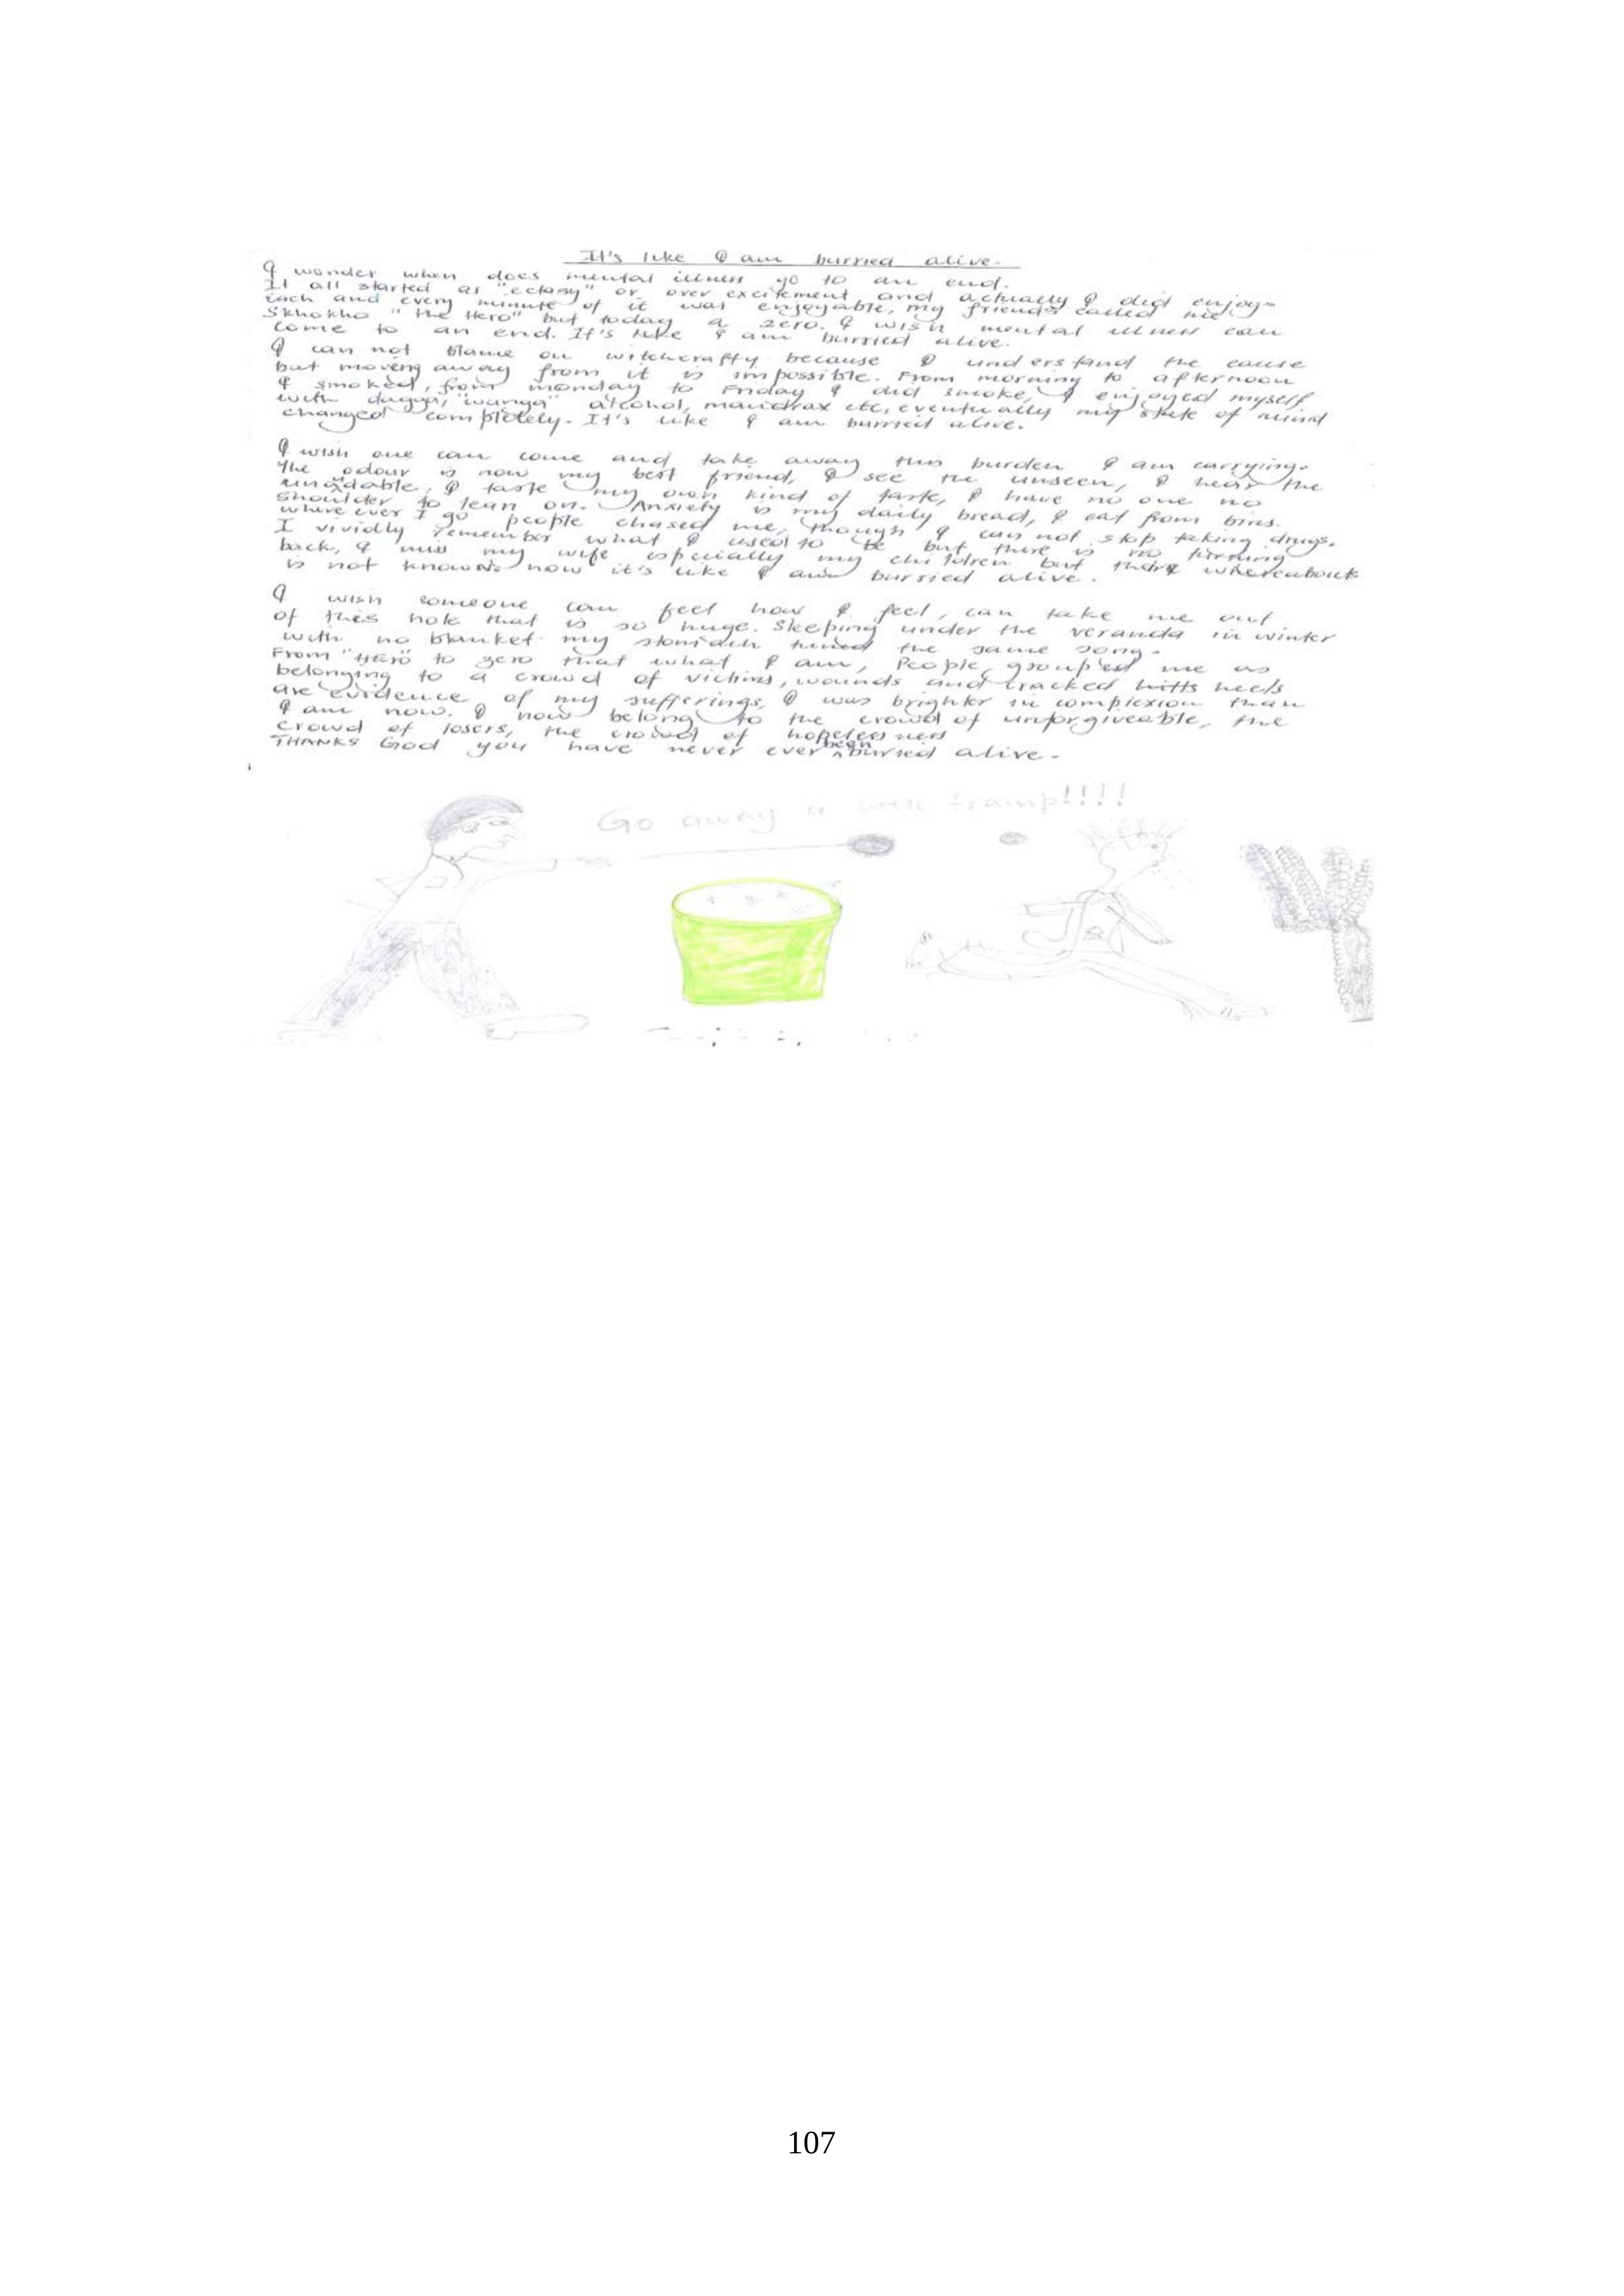 It's like I am burried alive.
I wonder when does mental illness go to an end.
It all started as "ectasy" or over excitement and actually I did enjoy.
Each and every minute of it was enjoyable, my friends called me
Skhokho "the Hero" but today a zero. I wish mental illness can
come to an end. It's like I am burried alive.
I can not blame on witchcrafty because I understand the cause
but moveng away from it is impossible. From morning to afternoon
I smoked, from monday to Friday I did smoke, I enjoyed myself
with dagga, "wunga" alcohol, mandrax etc, eventually my state of mind
changed completely. It's like I am burried alive.
I wish one can come and take away this burden I am carrying.
The odour is now my best friend, I see the unseen, I hear the
I taste my own kind of taste, I have no one no
shoulder to lean on. Anxiety is my daily bread, I eat from bins.
where ever I go people chased me, though I can not stop taking drugs.
I vividly remember what I used to be but there is no turning
back, I miss my wife especially my children but their whereabouts
is not known now it's like I am burried alive.
I wish someone can feel how I feel, can take me out
of this hole that is so huge. Sleeping under the veranda in winter
with no blanket my stomach tuned the same song.
From "HERO" to zero that what I am, People grouped me as
belonging to a crowd of victims, wounds and cracked heels
are evidence of my sufferings, I was brighter in complexion than
I am now. I now belong to the crowd of unforgiveable, the
crowd of losers, the crowd of hopelessness
THANKS God you have never ever been burried alive.
Go away u tramp!!!!
107